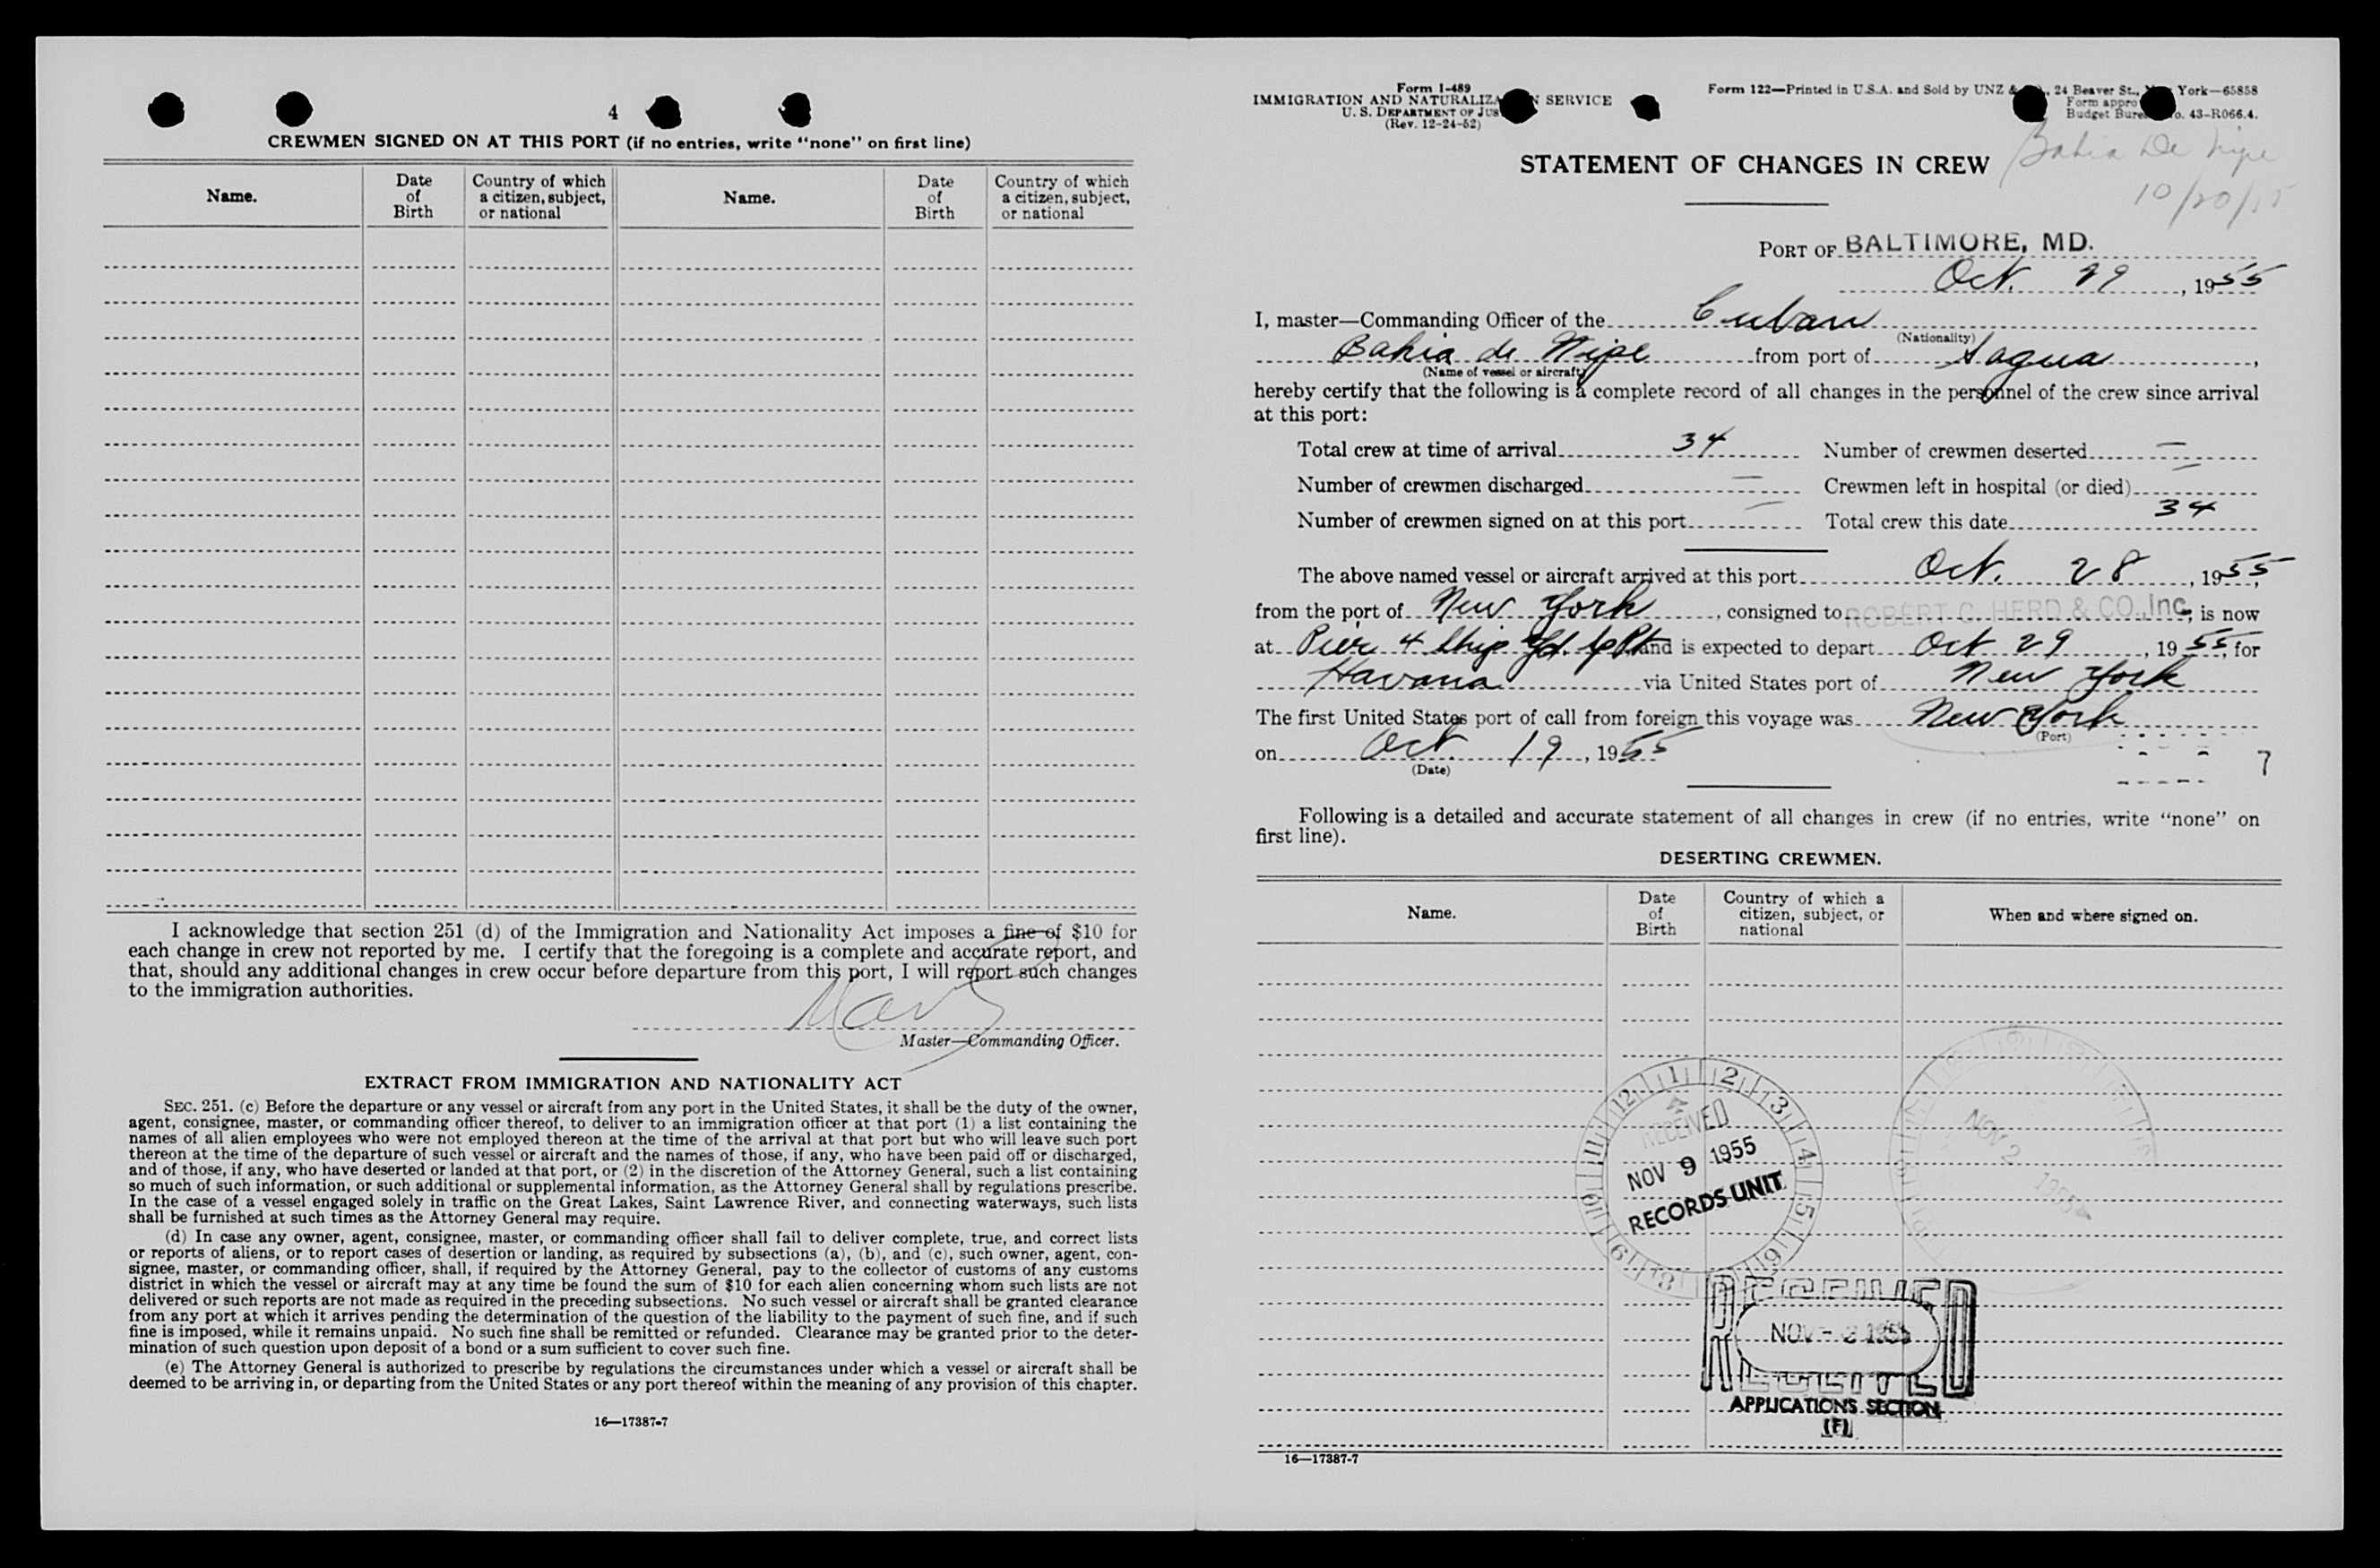 4
CREWMEN SIGNED ON AT THIS PORT (if no entries, write "none" on first line)
Name. Date of Birth Country of which a citizen, subject, or national Name. Date of Birth Country of which a citizen, subject, or national
I acknowledge that section 251 (d) of the Immigration and Nationality Act imposes a fine of $10 for
each change in crew not reported by me. I certify that the foregoing is a complete and accurate report, and
that, should any additional changes in crew occur before departure from this port, I will report such changes
to the immigration authorities.
Master—Commanding Officer.
EXTRACT FROM IMMIGRATION AND NATIONALITY ACT
SEC. 251. (c) Before the departure or any vessel or aircraft from any port in the United States, it shall be the duty of the owner,
agent, consignee, master, or commanding officer thereof, to deliver to an immigration officer at that port (1) a list containing the
names of all alien employees who were not employed thereon at the time of the arrival at that port but who will leave such port
thereon at the time of the departure of such vessel or aircraft and the names of those, if any, who have been paid off or discharged,
and of those, if any, who have deserted or landed at that port, or (2) in the discretion of the Attorney General, such a list containing
so much of such information, or such additional or supplemental information, as the Attorney General shall by regulations prescribe.
In the case of a vessel engaged solely in traffic on the Great Lakes, Saint Lawrence River, and connecting waterways, such lists
shall be furnished at such times as the Attorney General may require.
(d) In case any owner, agent, consignee, master, or commanding officer shall fail to deliver complete, true, and correct lists
or reports of aliens, or to report cases of desertion or landing, as required by subsections (a), (b), and (c), such owner, agent, con-
signee, master, or commanding officer, shall, if required by the Attorney General, pay to the collector of customs of any customs
district in which the vessel or aircraft may at any time be found the sum of $10 for each alien concerning whom such lists are not
delivered or such reports are not made as required in the preceding subsections. No such vessel or aircraft shall be granted clearance
from any port at which it arrives pending the determination of the question of the liability to the payment of such fine, and if such
fine is imposed, while it remains unpaid. No such fine shall be remitted or refunded. Clearance may be granted prior to the deter-
mination of such question upon deposit of a bond or a sum sufficient to cover such fine.
(e) The Attorney General is authorized to prescribe by regulations the circumstances under which a vessel or aircraft shall be
deemed to be arriving in, or departing from the United States or any port thereof within the meaning of any provision of this chapter.
16—17387-7
Form I-489
IMMIGRATION AND SERVICE
U. S. DEPARTMENT OF
(Rev. 12-24-52)
Form 122—Printed in U.S.A. and Sold by UNZ & 24 Beaver St., York—65858
Form
Budget 43-R066.4.
Bahia De Nipe
STATEMENT OF CHANGES IN CREW
PORT OF BALTIMORE, MD.
Oct. 29, 1955
I, master—Commanding Officer of the Cuban
(Nationality)
Bahia de Nipe from port of Sagua,
(Name of vessel or aircraft)
hereby certify that the following is a complete record of all changes in the personnel of the crew since arrival
at this port:
Total crew at time of arrival 34 Number of crewmen deserted —
Number of crewmen discharged — Crewmen left in hospital (or died) —
Number of crewmen signed on at this port — Total crew this date 34
The above named vessel or aircraft arrived at this port Oct. 28, 1955,
from the port of New York, consigned to ROBERT C. HERD & CO., Inc, is now
at Pier 4 Ship Yd. and is expected to depart Oct 29, 1955, for
Havana via United States port of New York
The first United States port of call from foreign this voyage was New York
(Port)
on Oct. 19, 1955
(Date)
7
Following is a detailed and accurate statement of all changes in crew (if no entries, write "none" on
first line).
DESERTING CREWMEN.
Name. Date of Birth Country of which a citizen, subject, or national When and where signed on.
12 1 2 3 4 5 6 8 9 10 11
RECEIVED
NOV 9 1955
RECORDS UNIT
NOV 2 1955
RECEIVED
RECEIVED
APPLICATIONS SECTION
(F)
16—17387-7